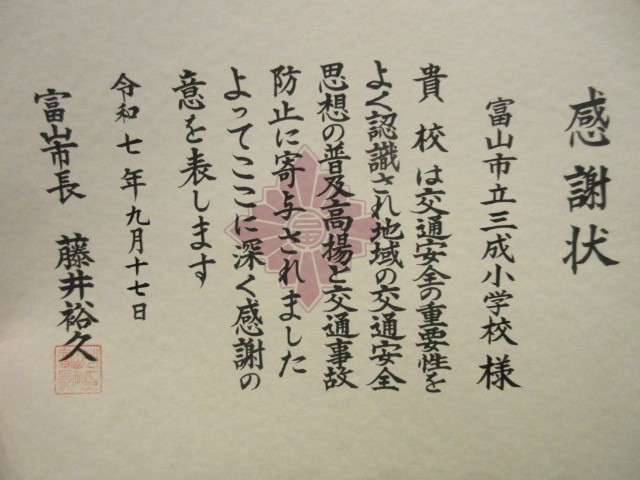 感謝状
富山市立三成小学校 様
貴校は交通安全の重要性を
よく認識され地域の交通安全
思想の普及高揚と交通事故
防止に寄与されました
よってここに深く感謝の
意を表します
令和七年九月十七日
富山市長 藤井裕久